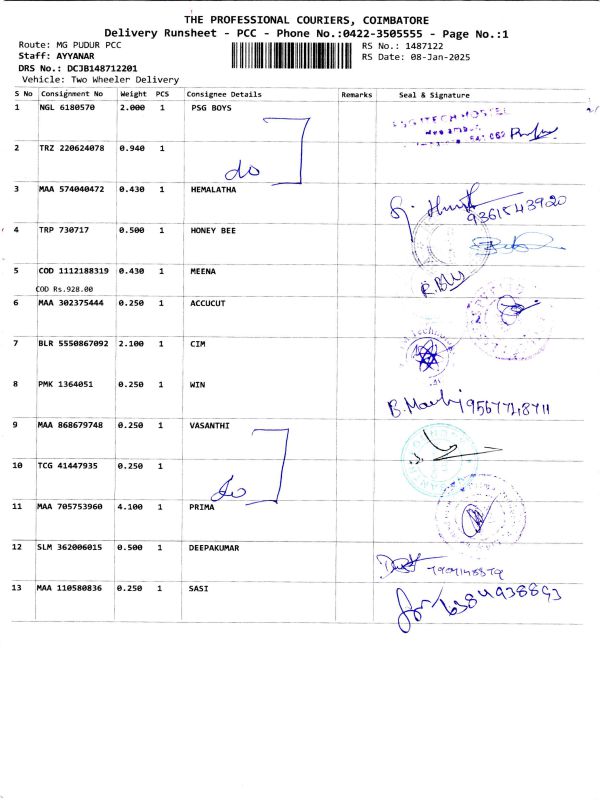 THE PROFESSIONAL COURIERS, COIMBATORE
Delivery Runsheet - PCC - Phone No.:0422-3505555 - Page No.:1
Route: MG PUDUR PCC
RS No.: 1487122
Staff: AYYANAR
RS Date: 08-Jan-2025
DRS No.: DCJB148712201
Vehicle: Two Wheeler Delivery
S No Consignment No Weight PCS Consignee Details Remarks Seal & Signature
1 NGL 6180570 2.000 1 PSG BOYS
2 TRZ 220624078 0.940 1 do
3 MAA 574040472 0.430 1 HEMALATHA 9361543920
4 TRP 730717 0.500 1 HONEY BEE
5 COD 1112188319 0.430 1 MEENA
COD Rs.928.00
6 MAA 302375444 0.250 1 ACCUCUT
7 BLR 5550867092 2.100 1 CIM
8 PMK 1364051 0.250 1 WIN
9 MAA 868679748 0.250 1 VASANTHI
10 TCG 41447935 0.250 1 do
11 MAA 705753960 4.100 1 PRIMA
12 SLM 362006015 0.500 1 DEEPAKUMAR
13 MAA 110580836 0.250 1 SASI